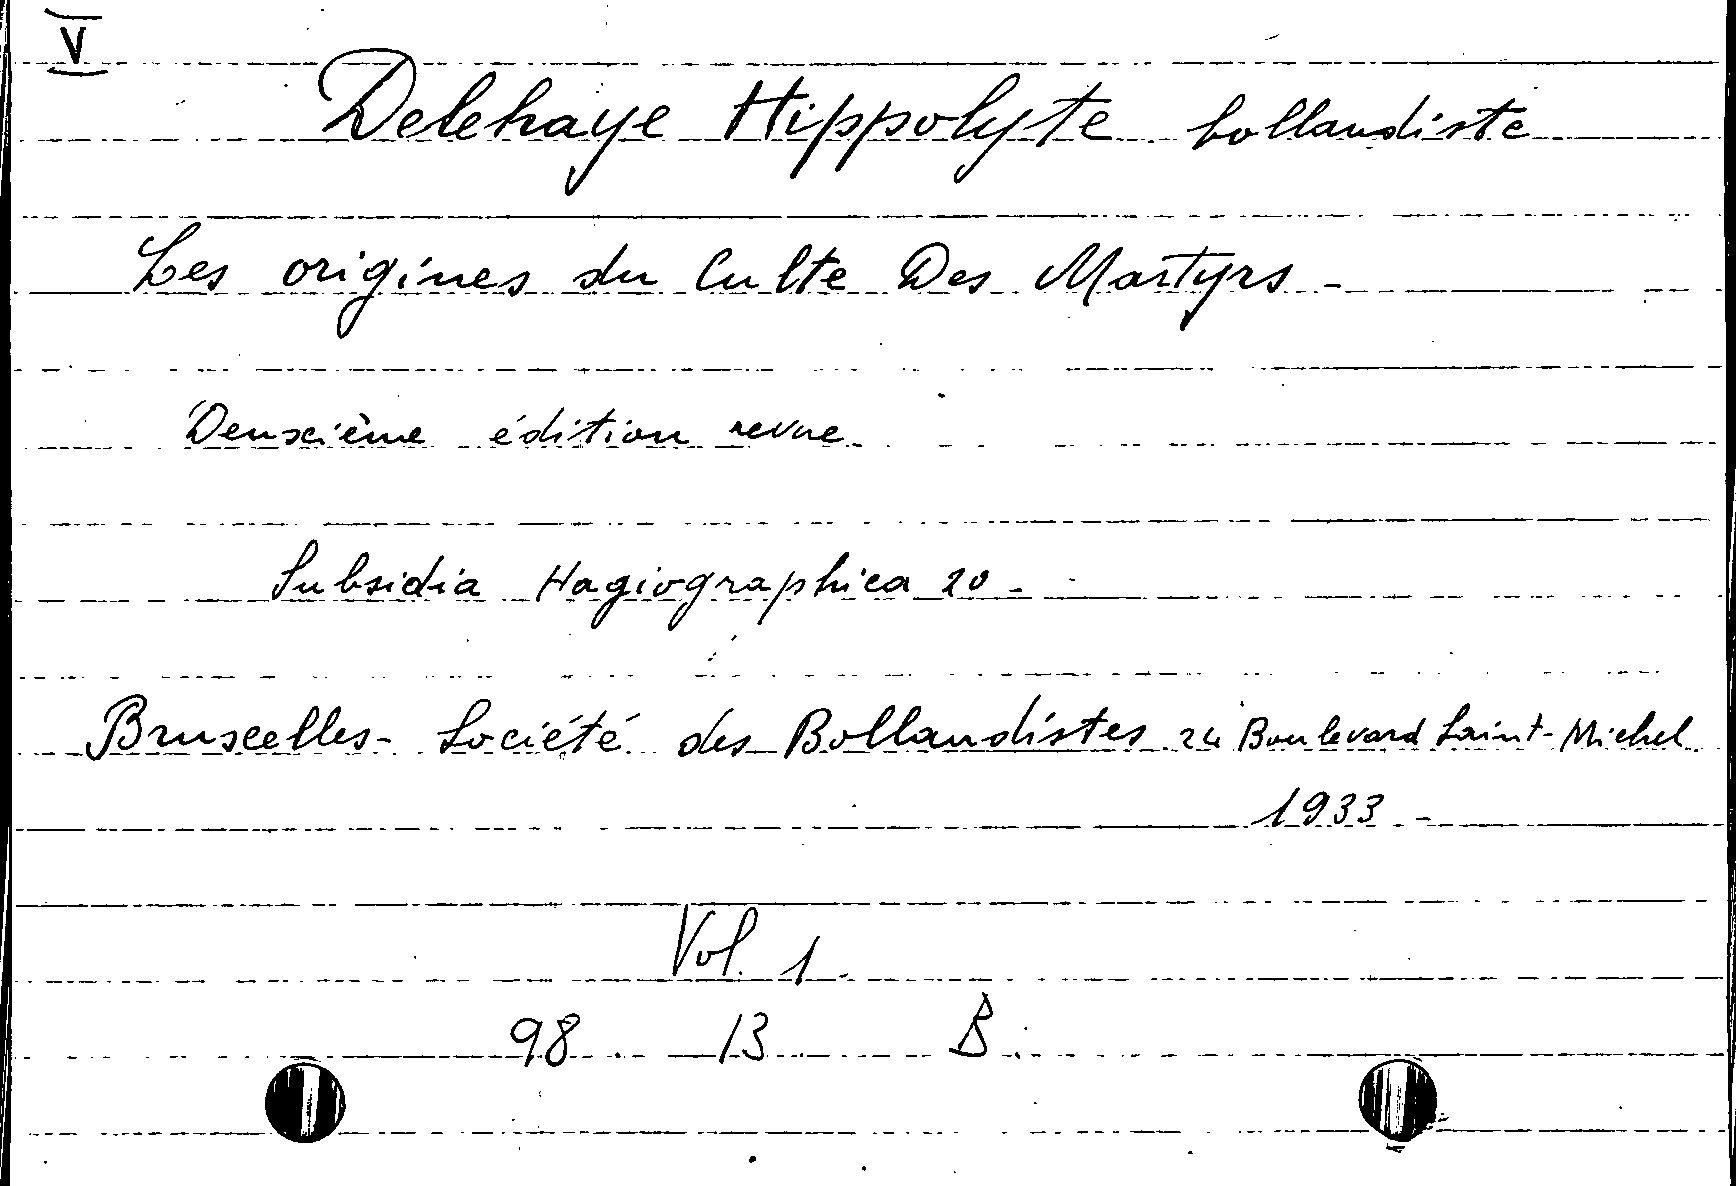 V
Delehaye Hippolyte bollandiste
Les origines du Culte Des Martyrs -
Deuxième édition revue
Subsidia Hagiographica 20 -
Bruxelles - Société des Bollandistes 24 Boulevard Saint-Michel
1933 -
Vol. 1.
98 13 B.